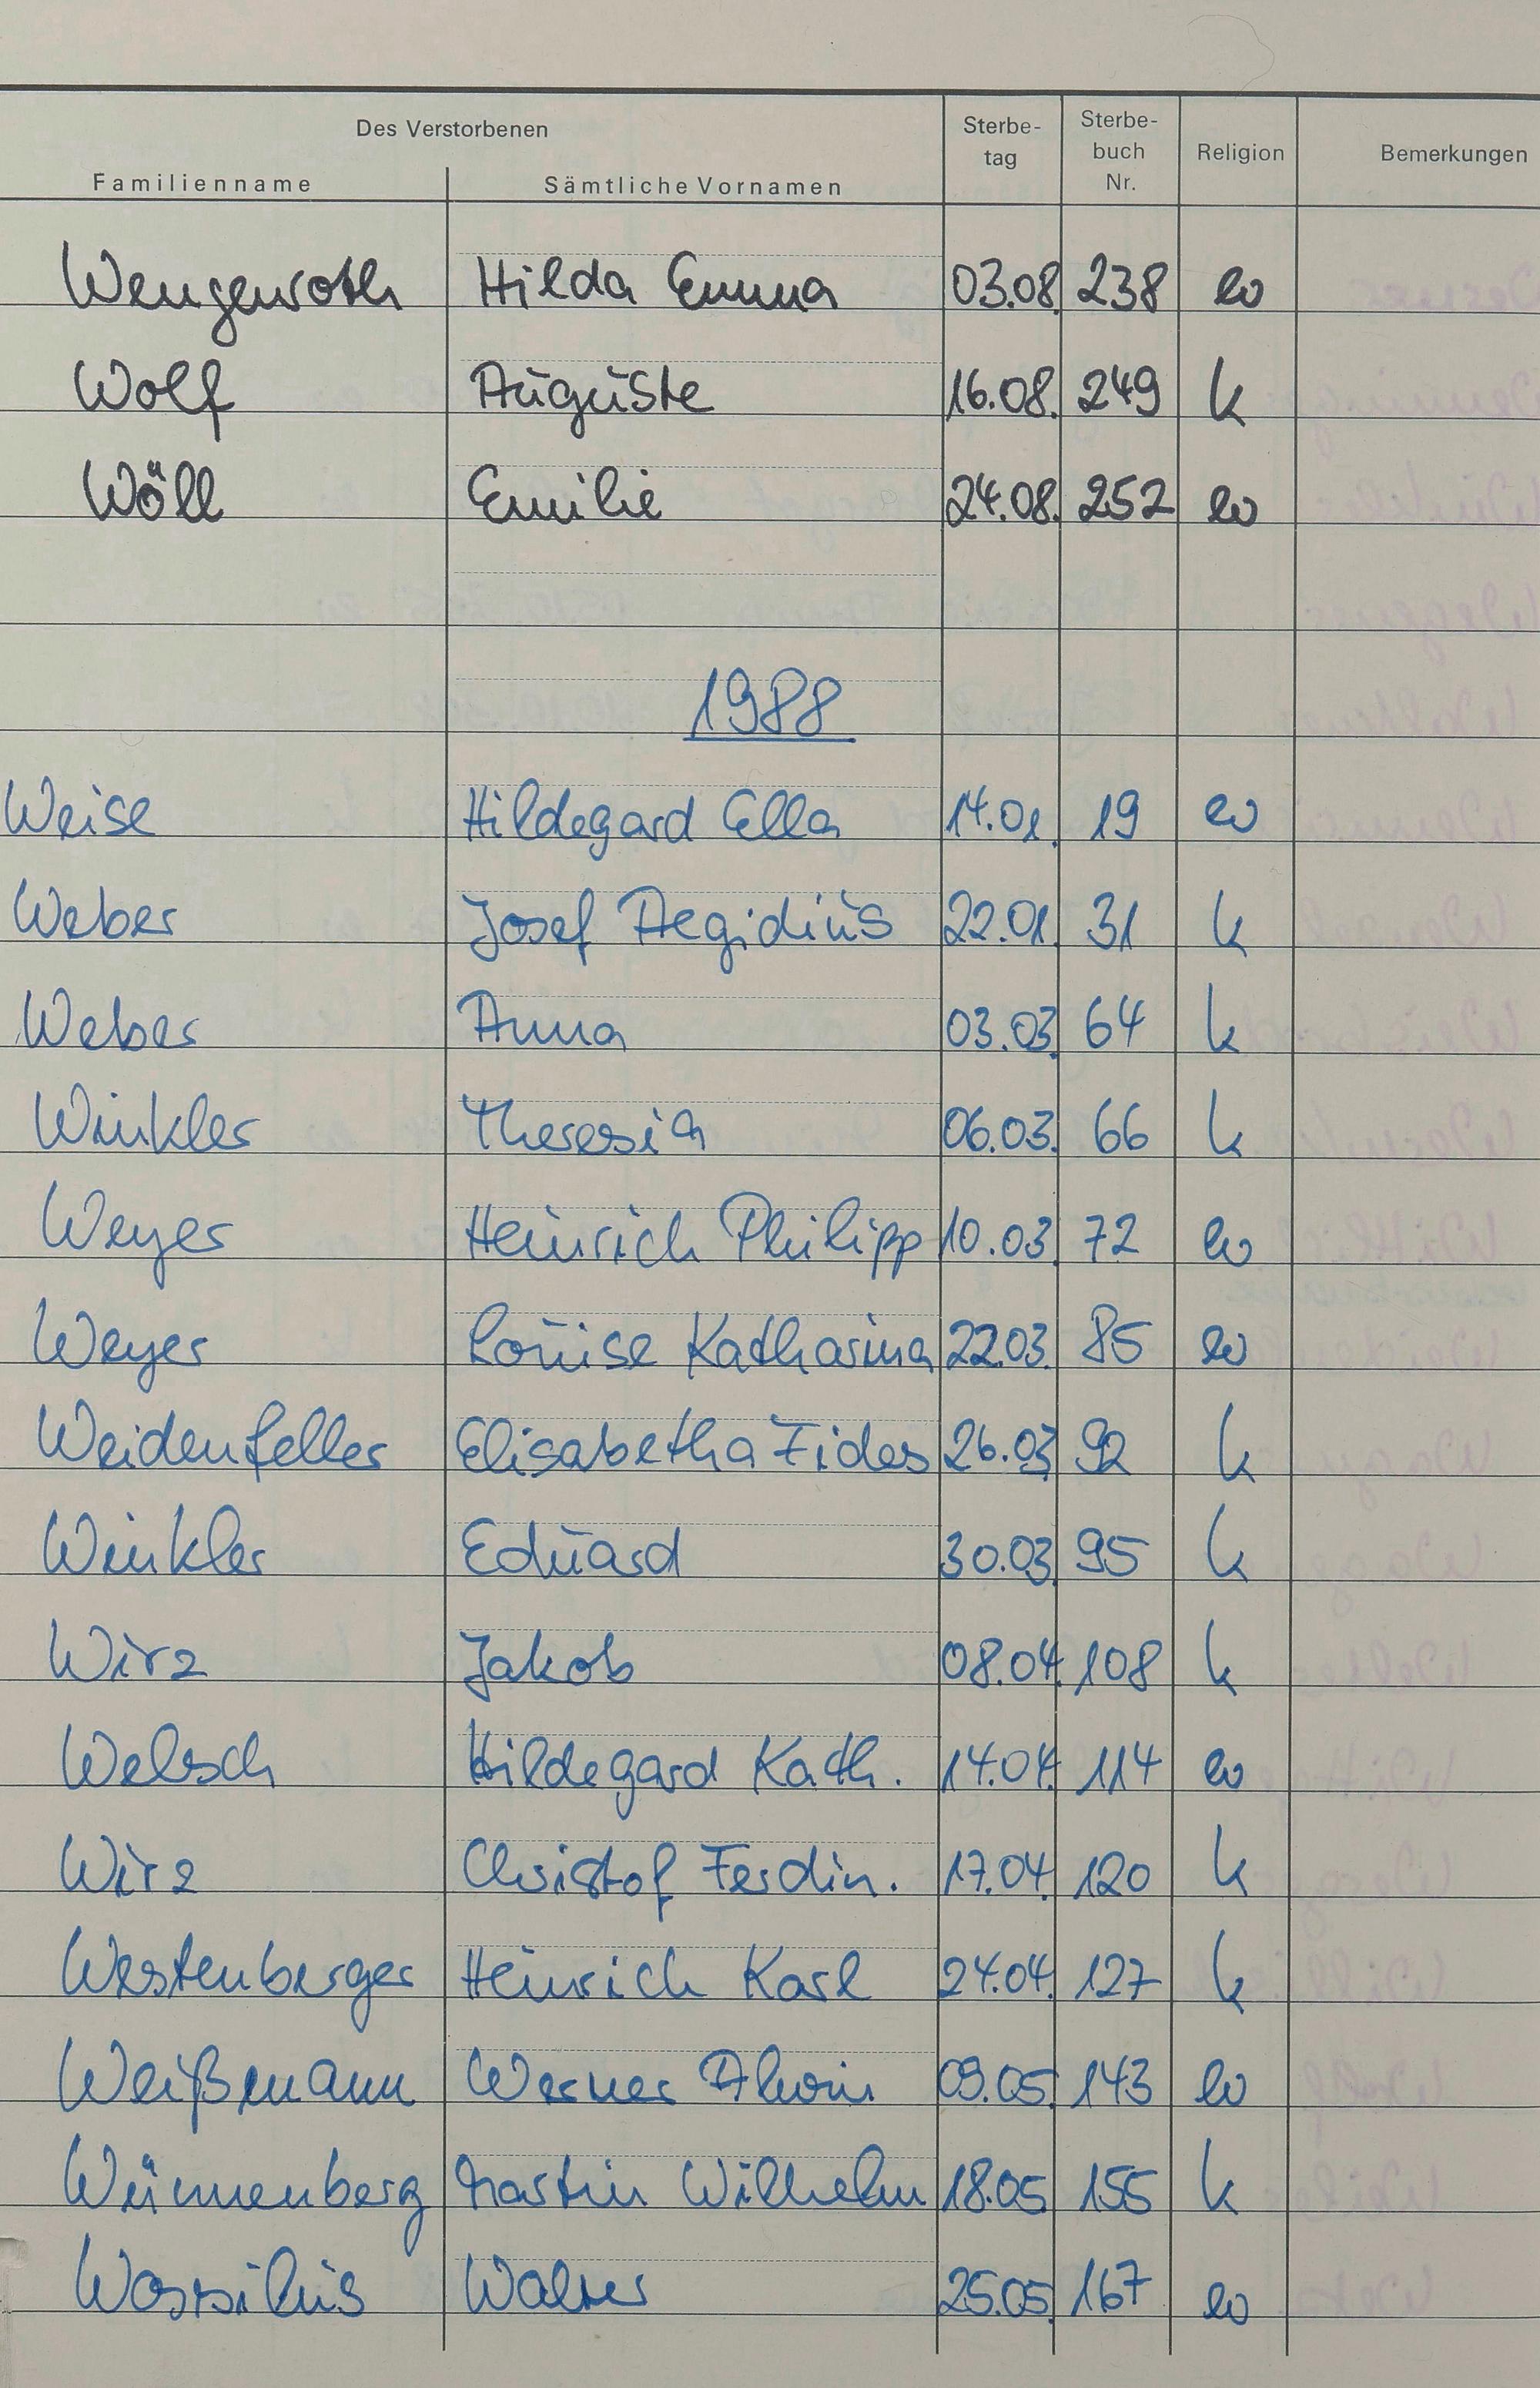 Des Verstorbenen
Familienname Sämtliche Vornamen Sterbe-tag Sterbe-buch Nr. Religion Bemerkungen
Wengenroth Hilda Emma 03.08. 238 ev
Wolf Auguste 16.08. 249 k
Wöll Emilie 24.08. 252 ev
1988
Weise Hildegard Ella 14.01. 19 ev
Weber Josef Aegidius 22.01. 31 k
Weber Anna 03.03. 64 k
Winkler Theresia 06.03. 66 k
Weyer Heinrich Philipp 10.03. 72 ev
Weyer Louise Katharina 22.03. 85 ev
Weidenfeller Elisabetha Fides 26.03. 92 k
Winkler Eduard 30.03. 95 k
Wirz Jakob 08.04. 108 k
Welsch Hildegard Kath. 14.04. 114 ev
Wirz Christof Ferdin. 17.04. 120 k
Westenberger Heinrich Karl 24.04. 127 k
Weißmann Werner Alwin 09.05. 143 ev
Wünnenberg Martin Wilhelm 18.05. 155 k
Wossilus Walter 25.05. 167 ev